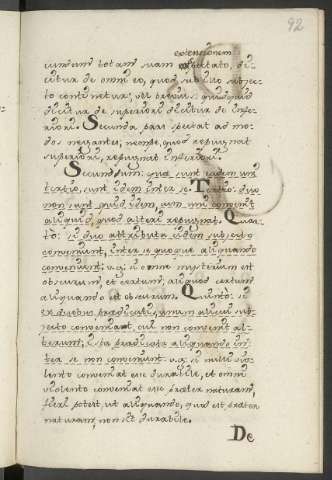 92
extensionem
cundum totam suam spectato, di-
citur de omni eo, quod sub illo subje-
cto continetur, vel brevi: quidquid
dicitur de superiori dicitur de infe-
riori. Secunda pars spectat ad mo-
dos negantes, nempe quod repugnat
superiori, repugnat inferiori.
Secundum: quæ sunt eadem uni
tertio, sunt idem inter se. Tertio: duo
non sunt quid idem, cum uni convenit
aliquid, quod alteri repugnat. Quar-
tò: si duo attributa eidem subjecto
conveniunt, inter se quoque aliquando
conveniunt: v.g. si omne mysterium est
obscurum, et certum, aliquod certum
aliquando est obscurum. Quintò: si
ex duobus prædicatis, unum alicui sub-
jecto conveniat, cui non convenit al-
terum, ista prædicata aliquando in-
ter se non conveniunt v.g. si nulli vio-
lento conveniat esse durabile, et omni
violento conveniat esse præter naturam,
fieri poterit, ut aliquando, quod est præter
naturam, non sit durabile.
De